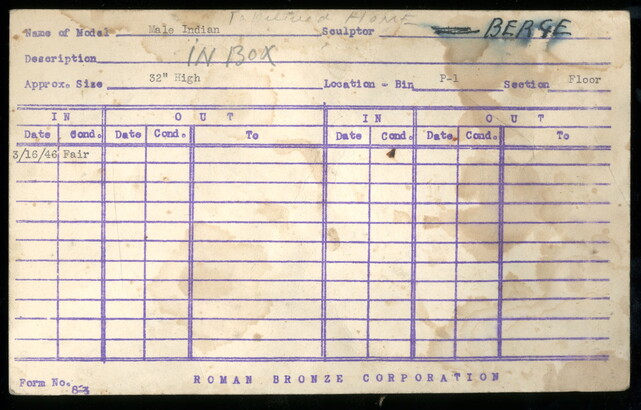 HOME
Name of Model Male Indian Sculptor BERGE
Description IN BOX
Approx. Size 32" High Location - Bin P-1 Section Floor
IN OUT IN OUT
Date Cond. Date Cond. To Date Cond. Date Cond. To
3/16/46 Fair
Form No. 83 ROMAN BRONZE CORPORATION